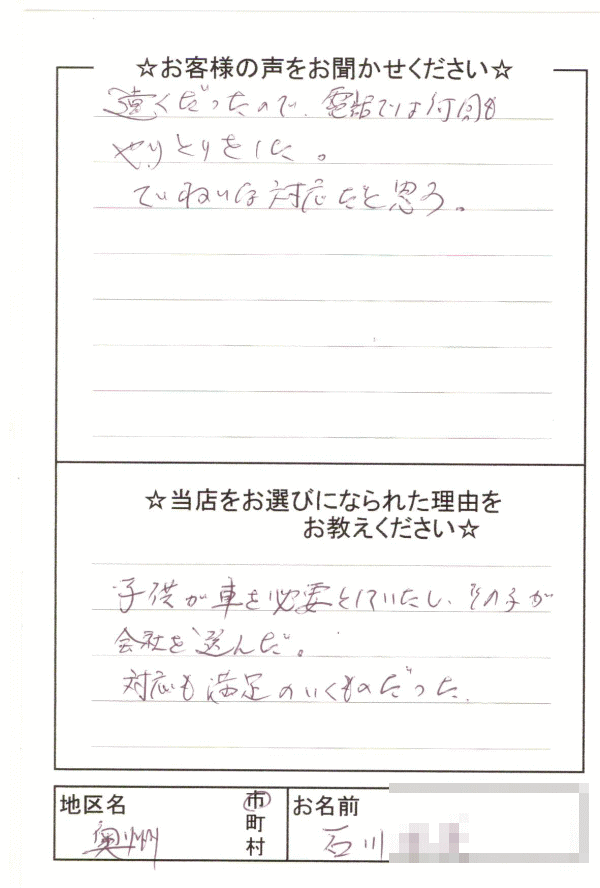 ☆お客様の声をお聞かせください☆
遠くだったので、電話では何回も
やりとりをした。
ていねいな対応だと思う。
☆当店をお選びになられた理由を
お教えください☆
子供が車を必要としていたし、その子が
会社を選んだ。
対応も満足のいくものだった。
地区名
奥州
市
町
村
お名前
石川